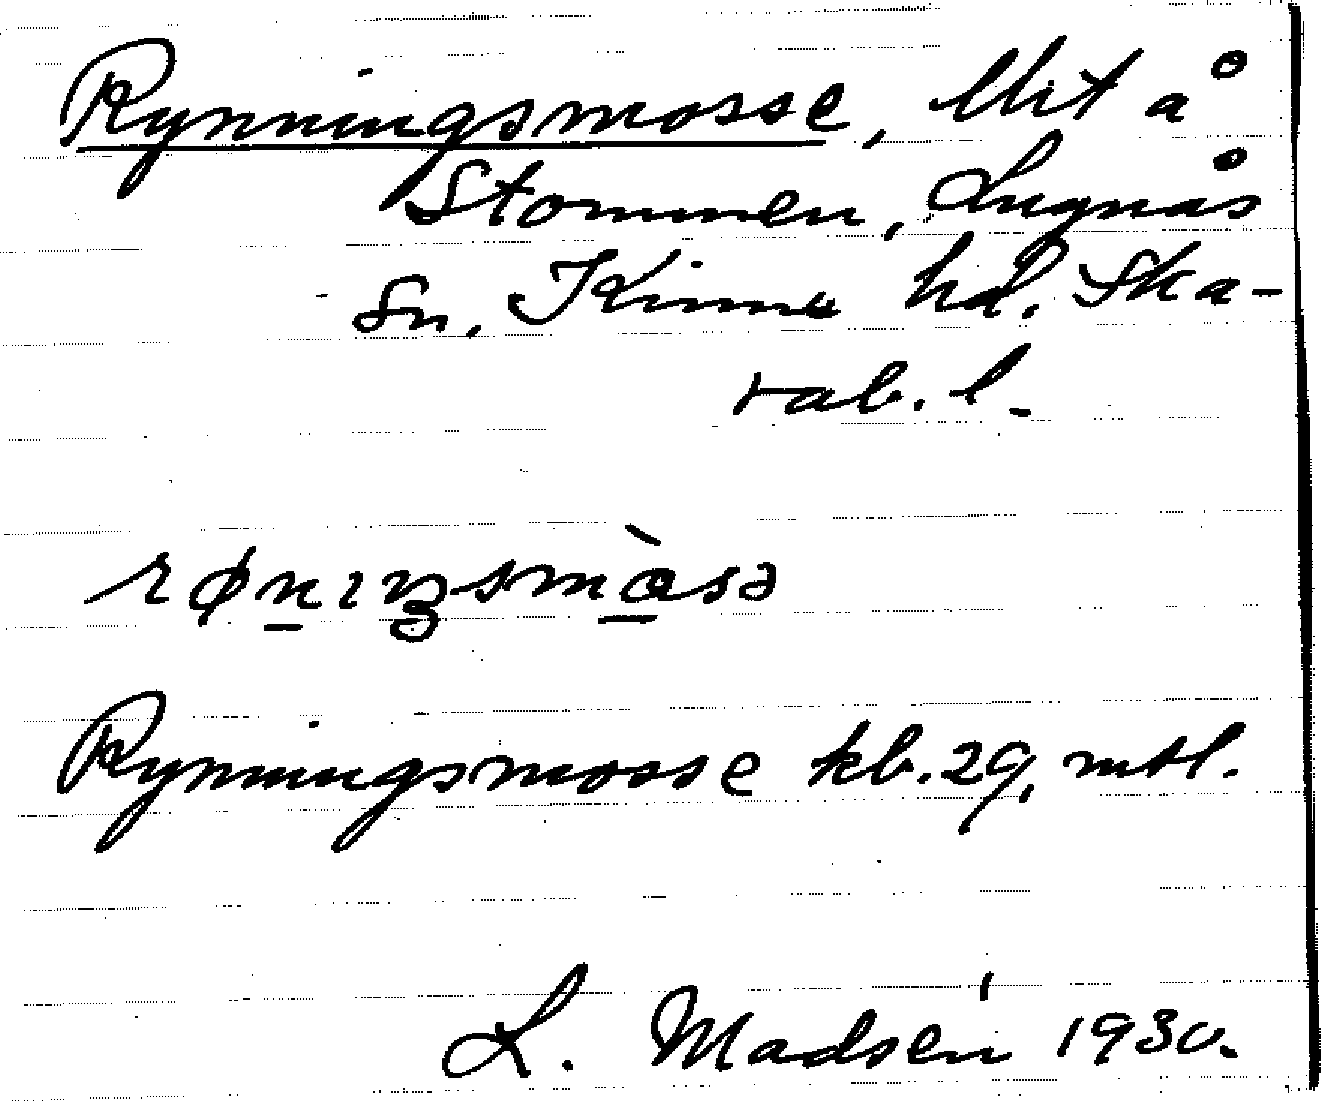 Rynningsmosse, Utit å
Stommen, Lugnås
sn. Kinne hd. Ska-
rab. l.
rønıŋsmàsə
Rynningsmosse kb. 29, mtl.
L. Madsén 1930.